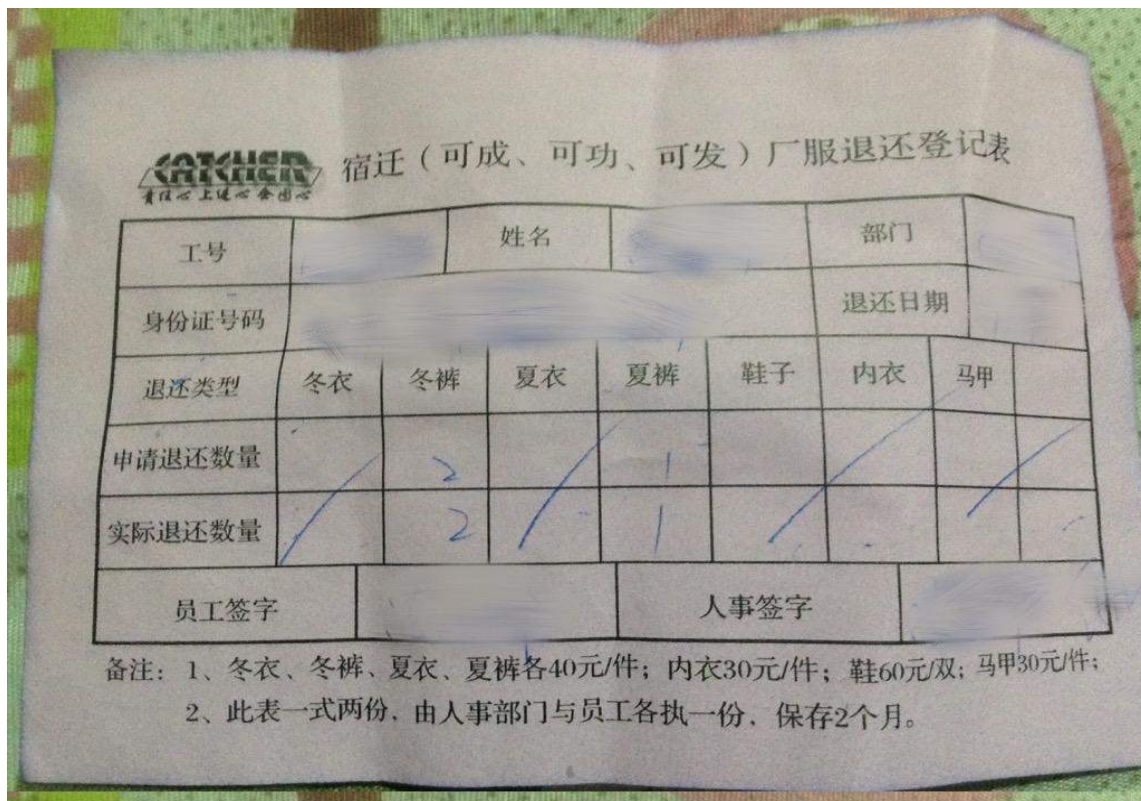 CATCHER 宿迁(可成、可功、可发)厂服退还登记表
责任心 上进心 企图心
工号 姓名 部门
身份证号码 退还日期
退还类型 冬衣 冬裤 夏衣 夏裤 鞋子 内衣 马甲
申请退还数量 2 1
实际退还数量 2 1
员工签字 人事签字
备注:1、冬衣、冬裤、夏衣、夏裤各40元/件;内衣30元/件;鞋60元/双;马甲30元/件;
2、此表一式两份,由人事部门与员工各执一份,保存2个月。